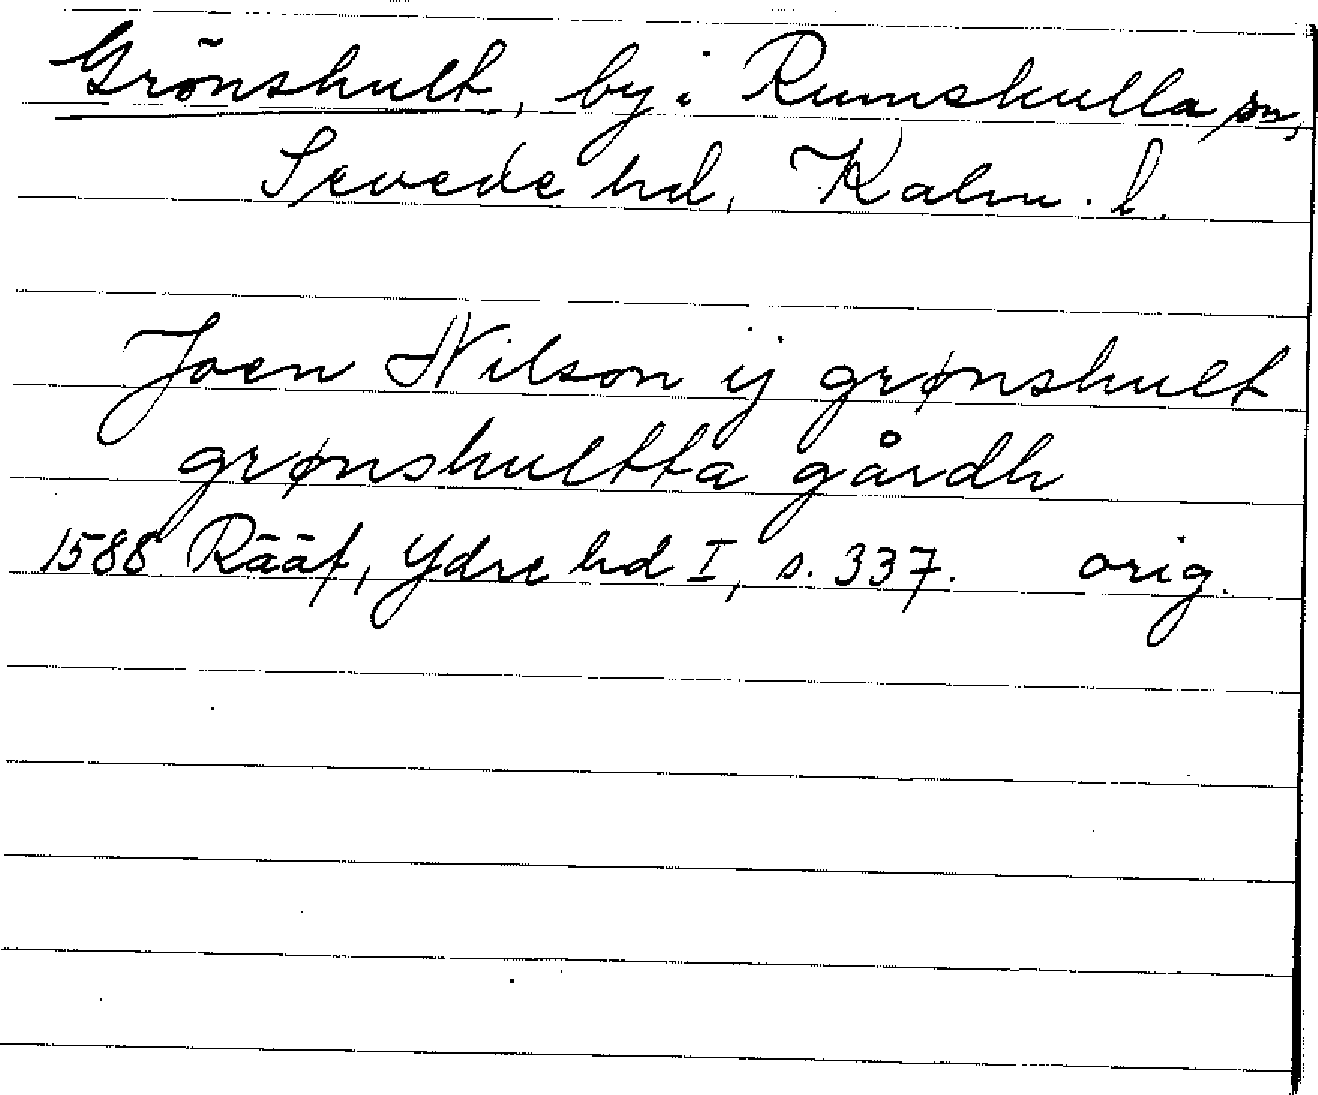 Grönshult, by i Rumskulla sn,
Sevede hd, Kalm. l.
Joen Nilson ij grønshult
grønshultta gårdh
1588 Rääf, Ydre hd I, s. 337. orig.